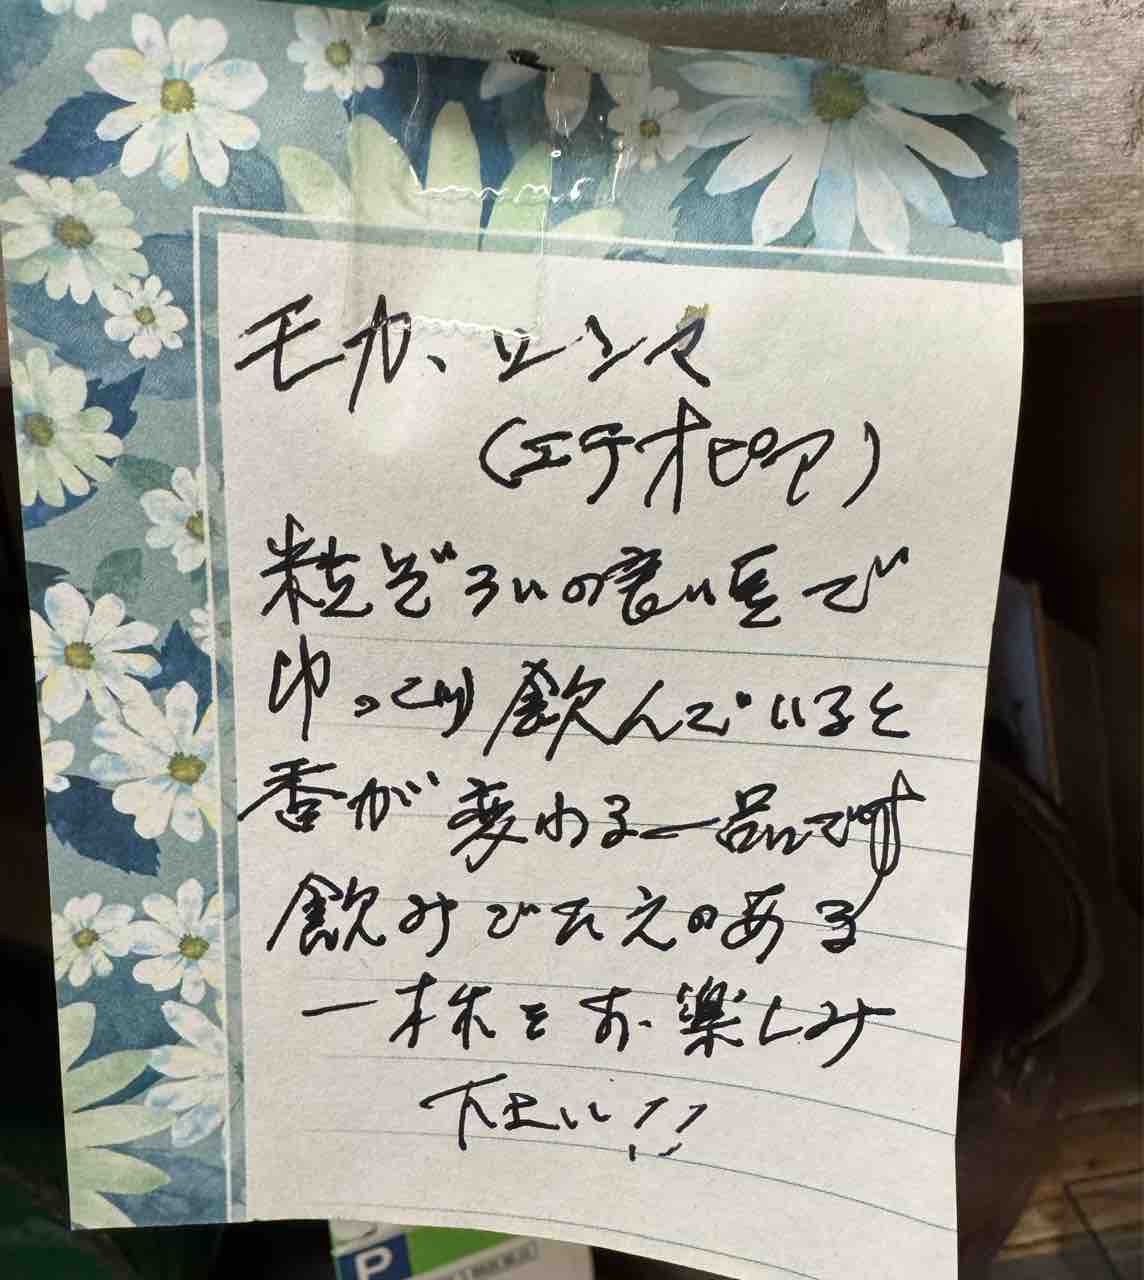 モカ、レンマ
(エチオピア)
粒ぞろいの良い豆で
ゆっくり飲んでいると
香が変わる一品です
飲みごたえのある
一杯をお楽しみ
下さい!!
P